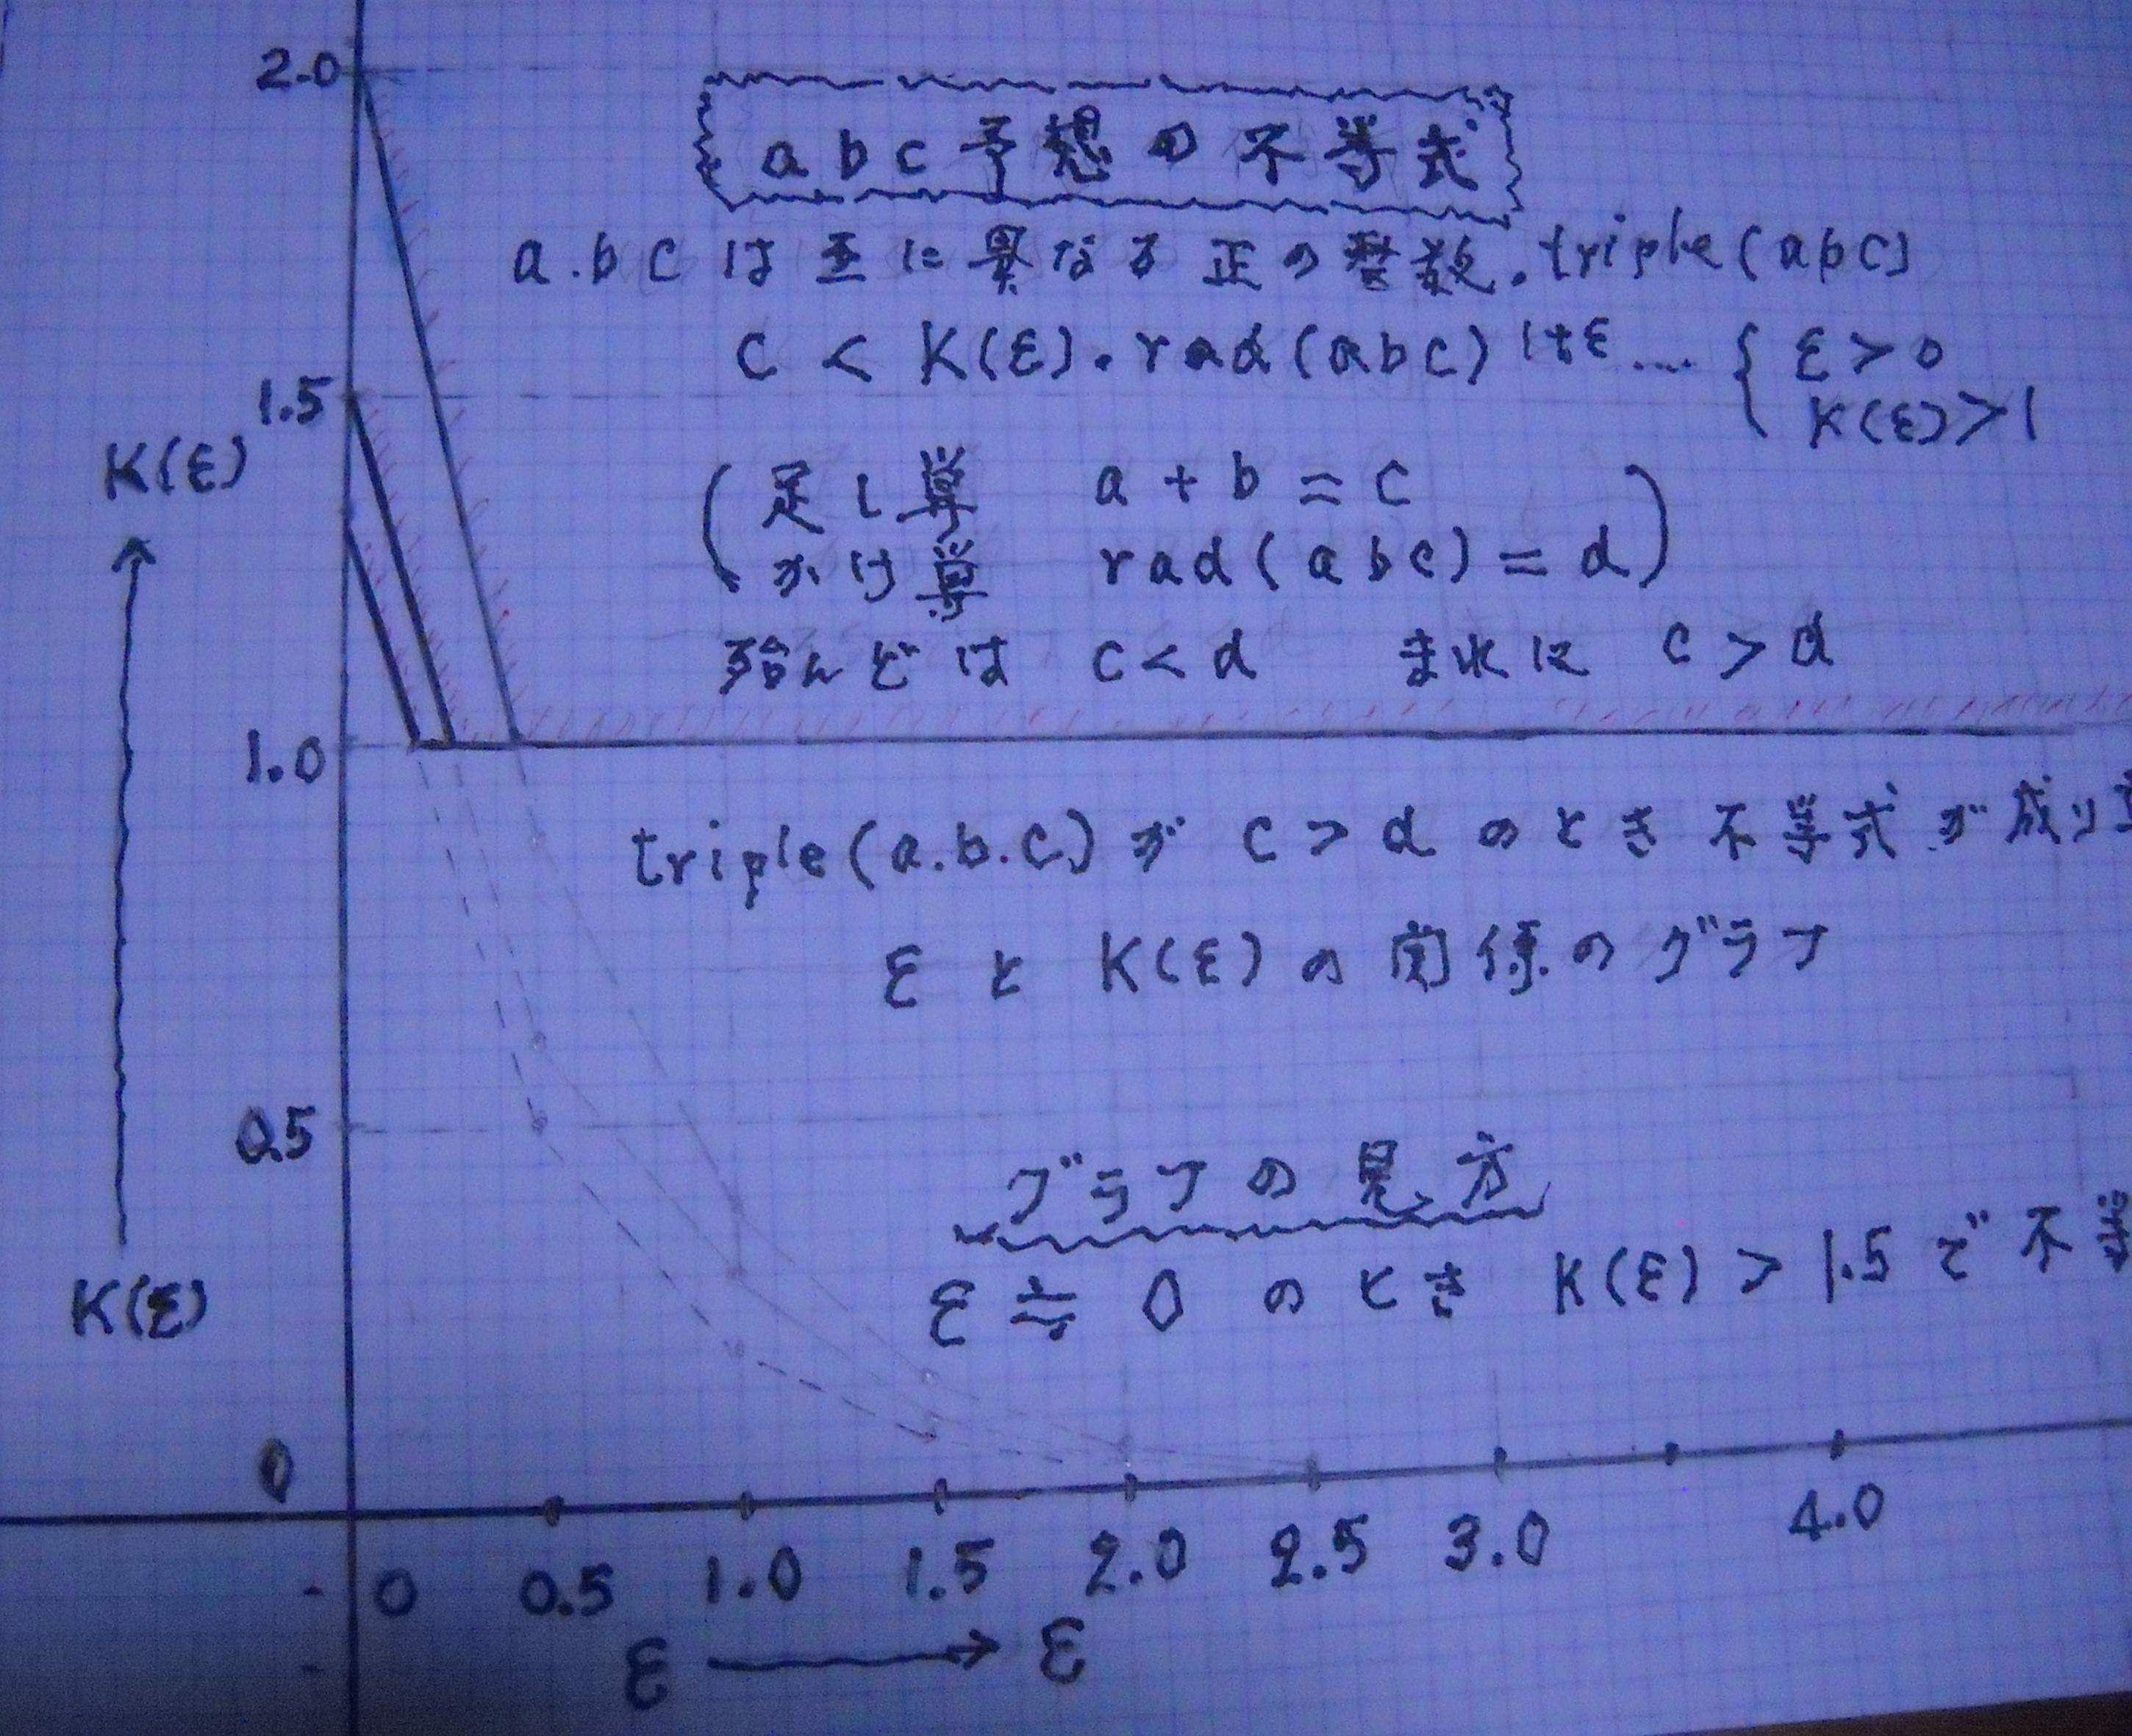 2.0
abc予想の不等式
a.bcは互に異なる正の整数.triple(abc)
c < K(ε).rad(abc)1+ε.... { ε>0
K(ε)>1
1.5
K(ε)
(足し算 a+b=c
かけ算 rad(abc)=d)
殆んどは c<d まれに c>d
1.0
triple(a.b.c)が c>d のとき不等式が成り立
εとK(ε)の関係のグラフ
0.5
グラフの見方
ε≒0のとき K(ε)>1.5で不等
K(ε)
0
0 0.5 1.0 1.5 2.0 2.5 3.0 4.0
ε → ε